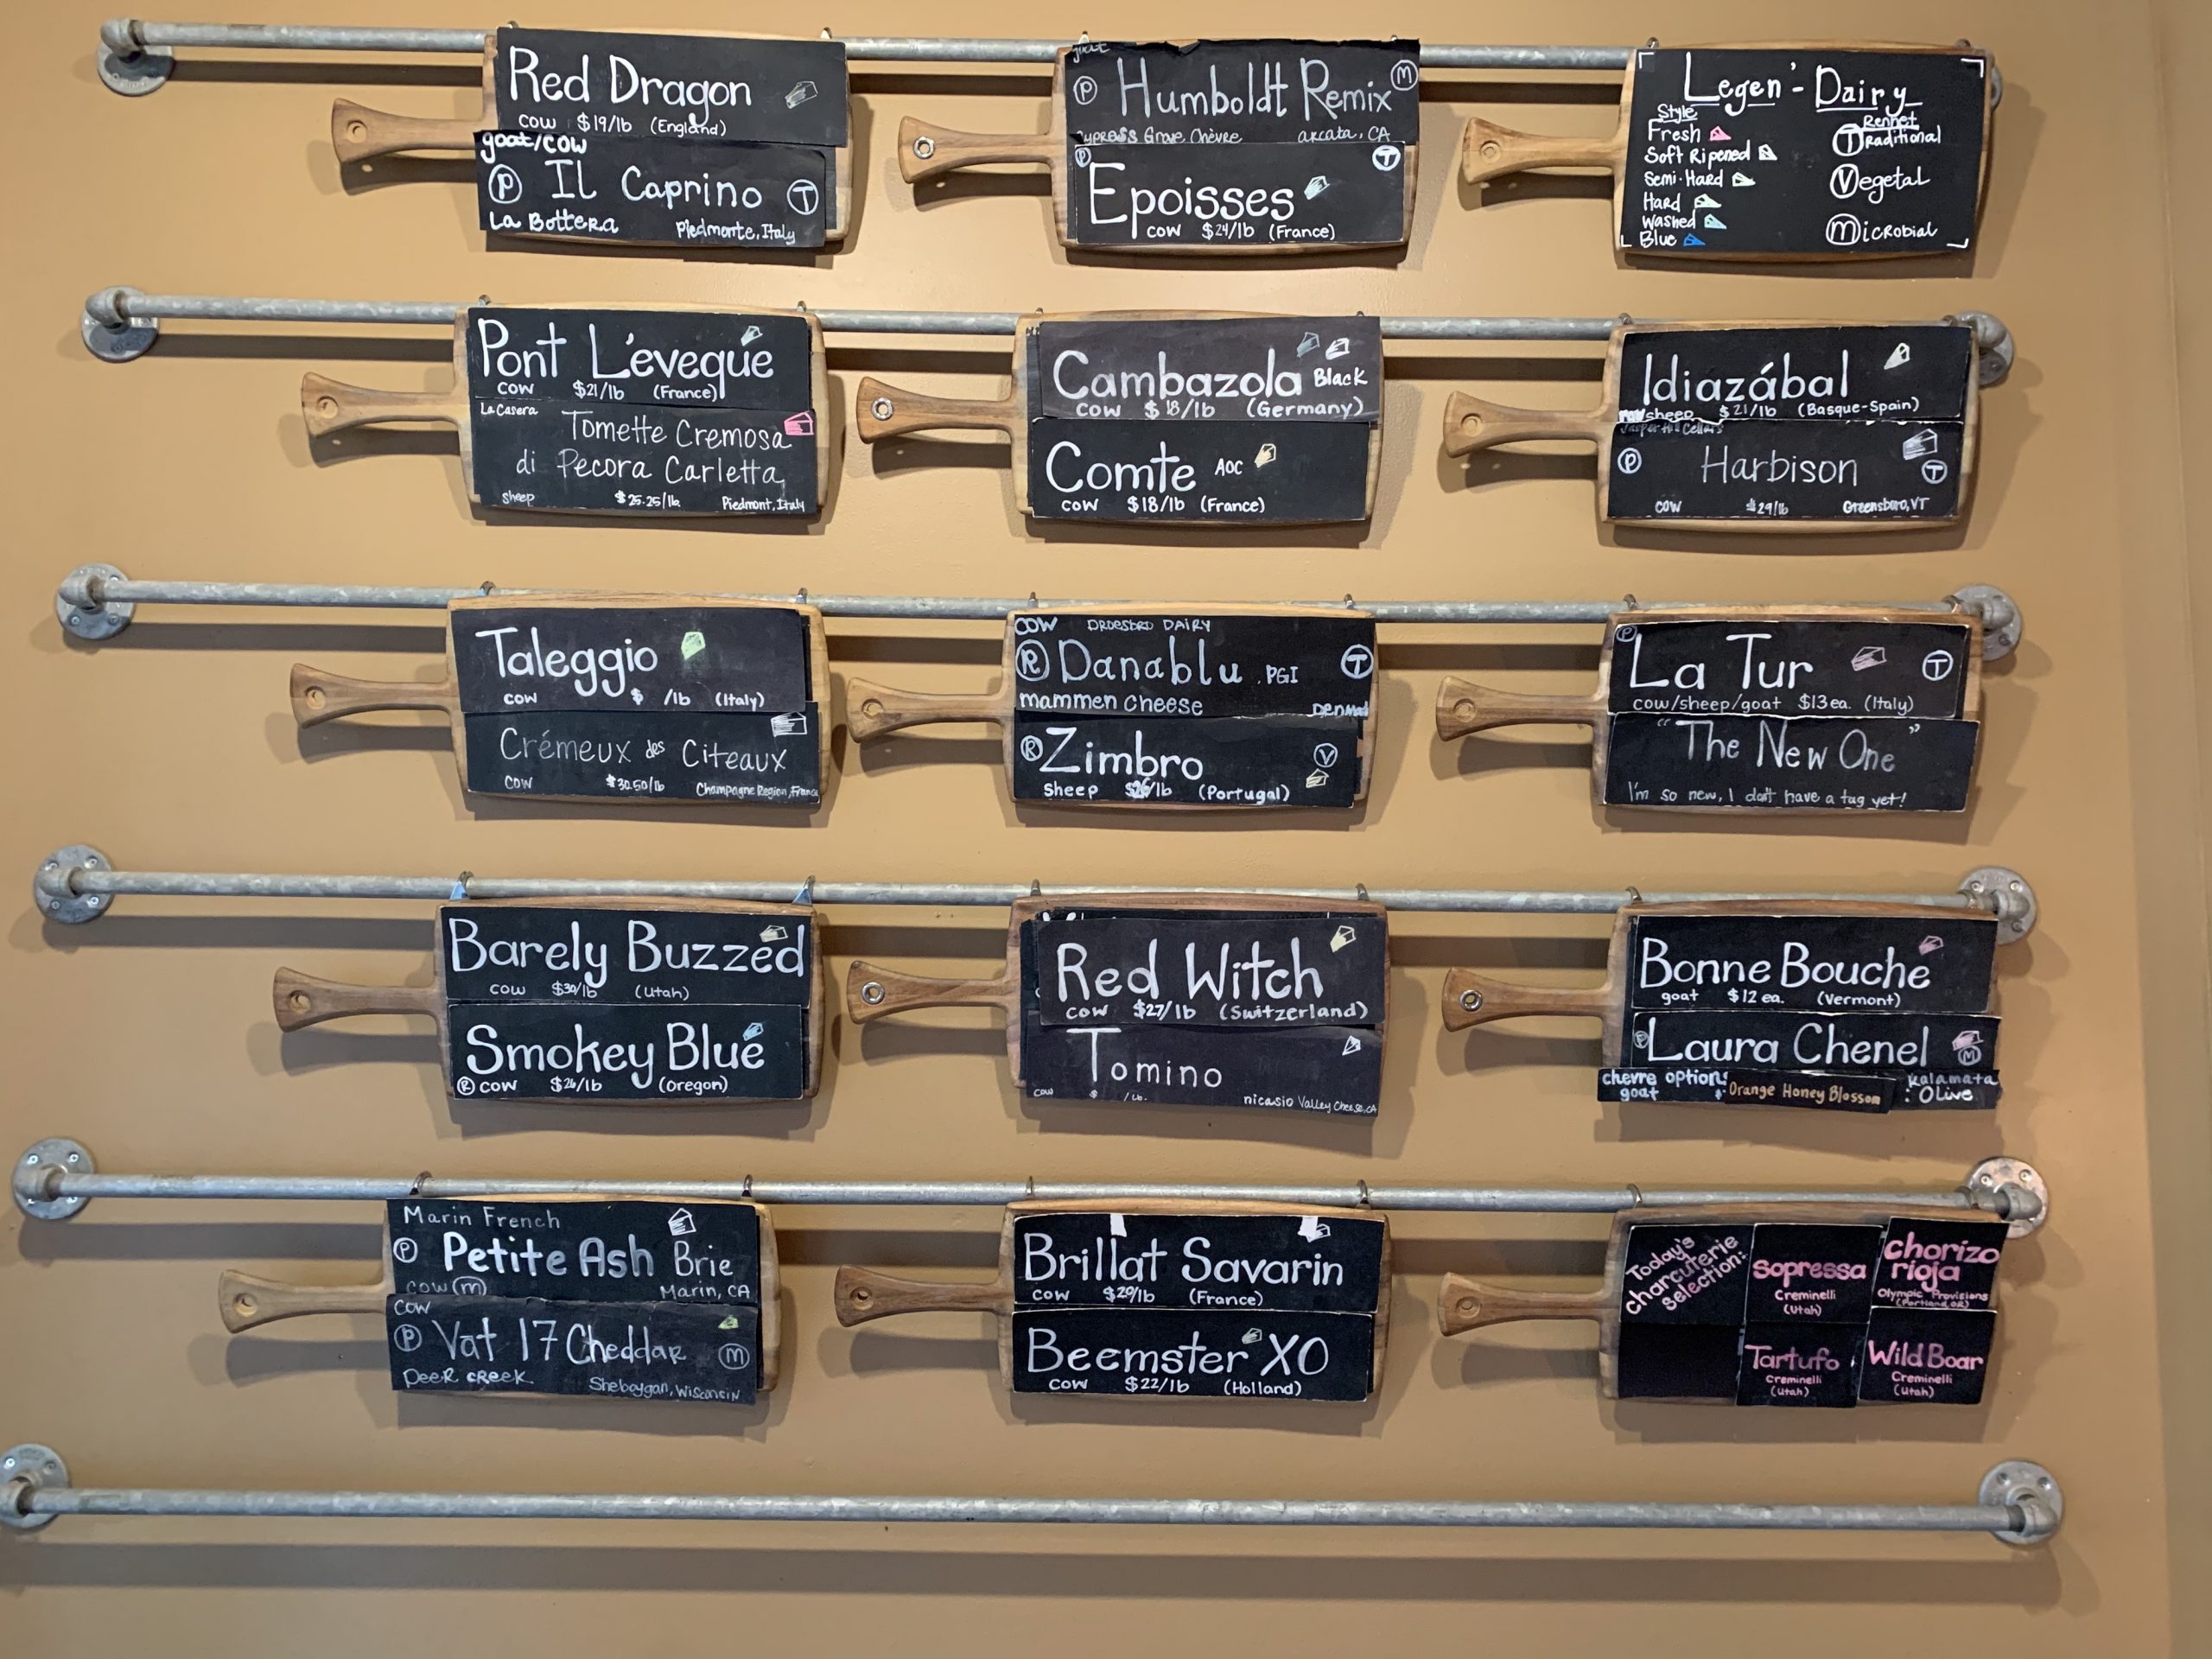 Red Dragon
cow $19/lb (England)
goat/cow
P Il Caprino T
La Bottera Piedmonte, Italy
goat
P Humboldt Remix M
ypress Grove Chèvre arcata, CA
P T
Epoisses
cow $24/lb (France)
Legen'-Dairy
Style Rennet
Fresh Traditional
Soft Ripened
Semi-Hard Vegetal
Hard
Washed Microbial
Blue
Pont L'éveque
cow $21/lb (France)
La Casera Tomette Cremosa
di Pecora Carletta
sheep $25.25/lb. Piedmont, Italy
Cambazola Black
cow $18/lb (Germany)
Comte AOC
cow $18/lb (France)
Idiazábal
raw sheep $21/lb (Basque-Spain)
Jasper Hill Cellars
P Harbison T
cow $29/lb Greensboro, VT
Taleggio
cow $ /lb (Italy)
Crémeux des Citeaux
cow $30.50/lb Champagne Region, France
cow DROESBRO DAIRY
R Danablu PGI T
mammen cheese
R Zimbro V
sheep /lb (Portugal)
P
La Tur T
cow/sheep/goat $13 ea. (Italy)
"The New One"
I'm so new, I don't have a tag yet!
Barely Buzzed
cow $30/lb (Utah)
Smokey Blue
R cow $26/lb (Oregon)
Red Witch
cow $27/lb (Switzerland)
Tomino
cow $ /lb. nicasio Valley Cheese, CA
Bonne Bouche
goat $12 ea. (Vermont)
P Laura Chenel M
chevre option: Orange Honey Blossom kalamata
goat $ : Olive
Marin French
P Petite Ash Brie
cow m Marin, CA
cow
P Vat 17 Cheddar M
Deer creek. Sheboygan, Wisconsin
Brillat Savarin
cow $29/lb (France)
Beemster XO
cow $22/lb (Holland)
Today's
charcuterie
selection:
Sopressa
Creminelli
(Utah)
chorizo
rioja
Olympic Provisions
(Portland, OR)
Tartufo
Creminelli
(Utah)
Wild Boar
Creminelli
(Utah)